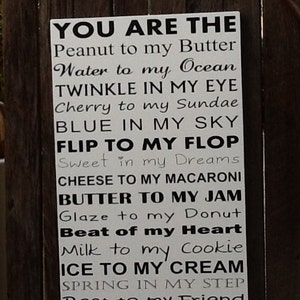 YOU ARE THE
Peanut to my Butter
Water to my Ocean
TWINKLE IN MY EYE
Cherry to my Sundae
BLUE IN MY SKY
FLIP TO MY FLOP
Sweet in my Dreams
CHEESE TO MY MACARONI
BUTTER TO MY JAM
Glaze to my Donut
Beat of my Heart
Milk to my Cookie
ICE TO MY CREAM
SPRING IN MY STEP
to my Friend